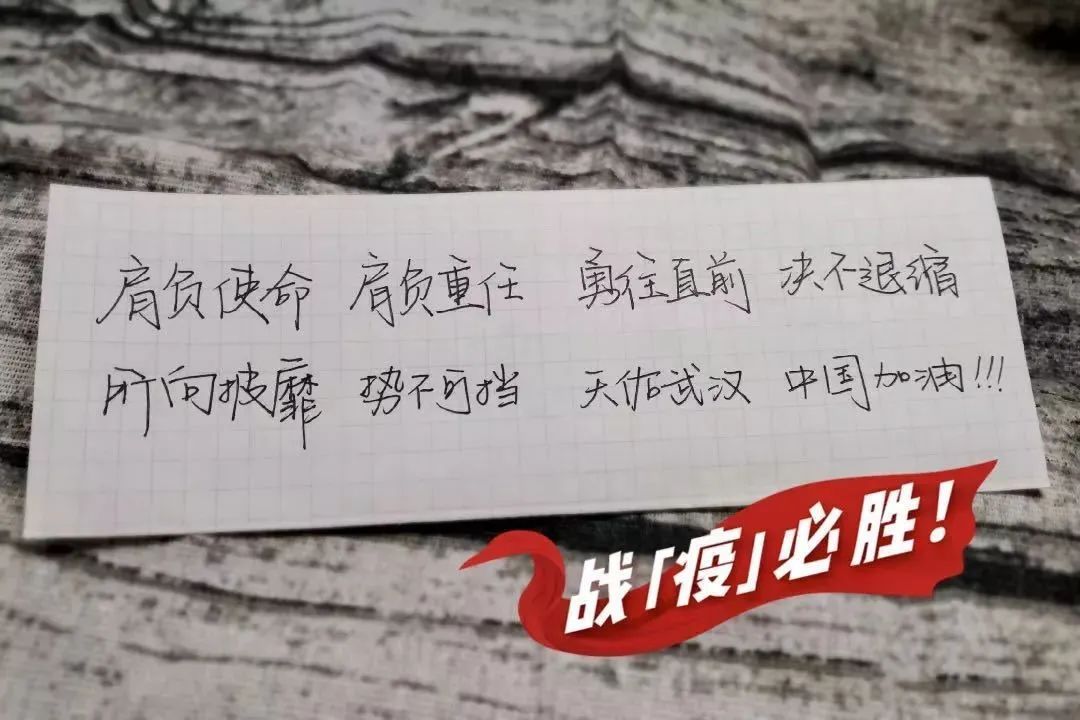 肩负使命 肩负重任 勇往直前 决不退缩
所向披靡 势不可挡 天佑武汉 中国加油!!!
战「疫」必胜!